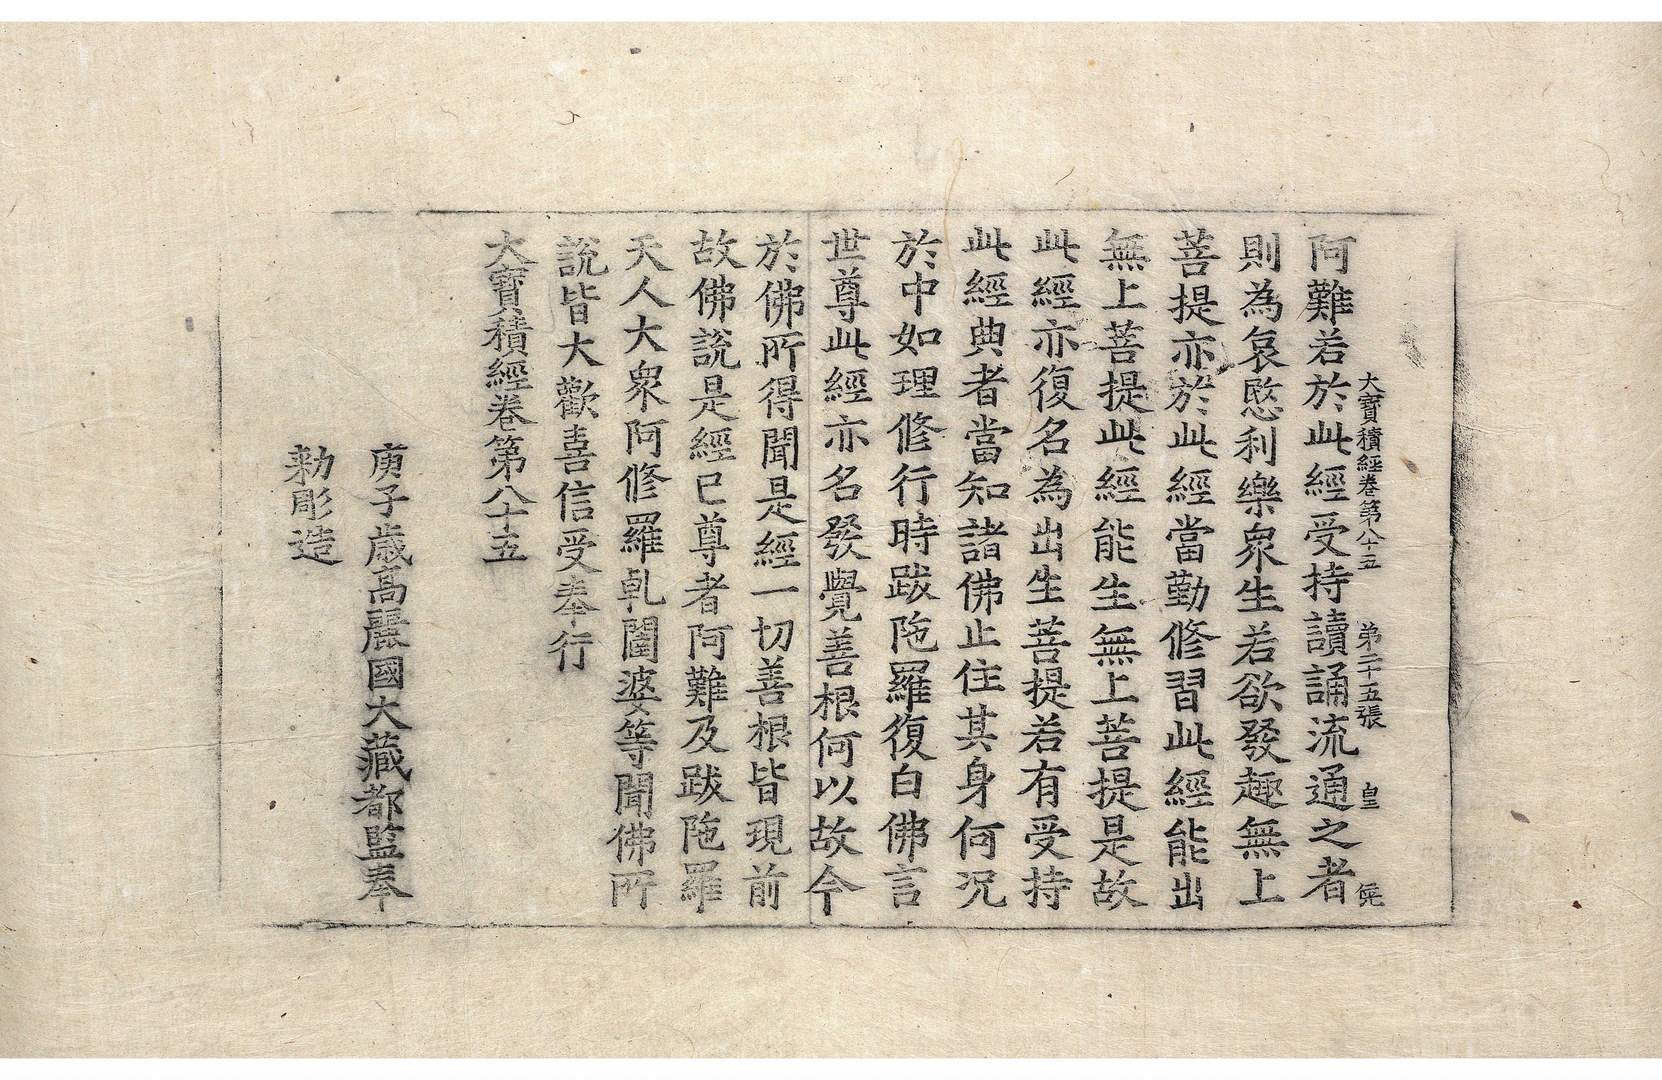 大寶積經卷第八十五 第二十五張 皇
阿難若於此經受持讀誦流通之者
則為哀愍利樂衆生若欲發趣無上
菩提亦於此經當勤修習此經能出
無上菩提此經能生無上菩提是故
此經亦復名為出生菩提若有受持
此經典者當知諸佛止住其身何况
於中如理修行時跋陁羅復白佛言
世尊此經亦名發覺善根何以故今
於佛所得聞是經一切善根皆現前
故佛說是經已尊者阿難及跋陁羅
天人大衆阿修羅乹闥婆等聞佛所
說皆大歡喜信受奉行
大寶積經卷第八十五
庚子歳高麗國大藏都監奉
勑彫造